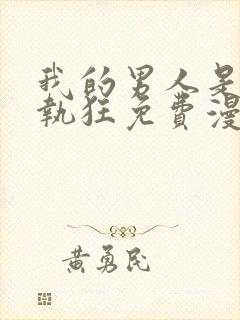 我的男人是
執狂免費漫
黃勇民